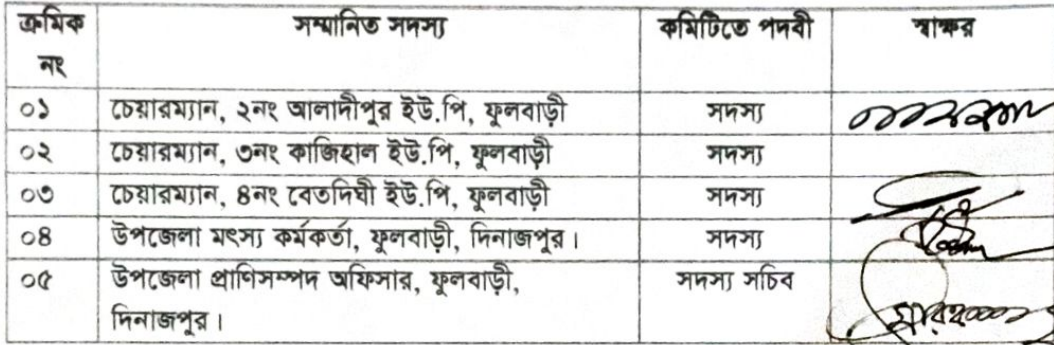 ক্রমিক নং সম্মানিত সদস্য কমিটিতে পদবী স্বাক্ষর
০১ চেয়ারম্যান, ২নং আলাদীপুর ইউ.পি, ফুলবাড়ী সদস্য
০২ চেয়ারম্যান, ৩নং কাজিহাল ইউ.পি, ফুলবাড়ী সদস্য
০৩ চেয়ারম্যান, ৪নং বেতদিঘী ইউ.পি, ফুলবাড়ী সদস্য
০৪ উপজেলা মৎস্য কর্মকর্তা, ফুলবাড়ী, দিনাজপুর। সদস্য
০৫ উপজেলা প্রাণিসম্পদ অফিসার, ফুলবাড়ী, সদস্য সচিব
দিনাজপুর।